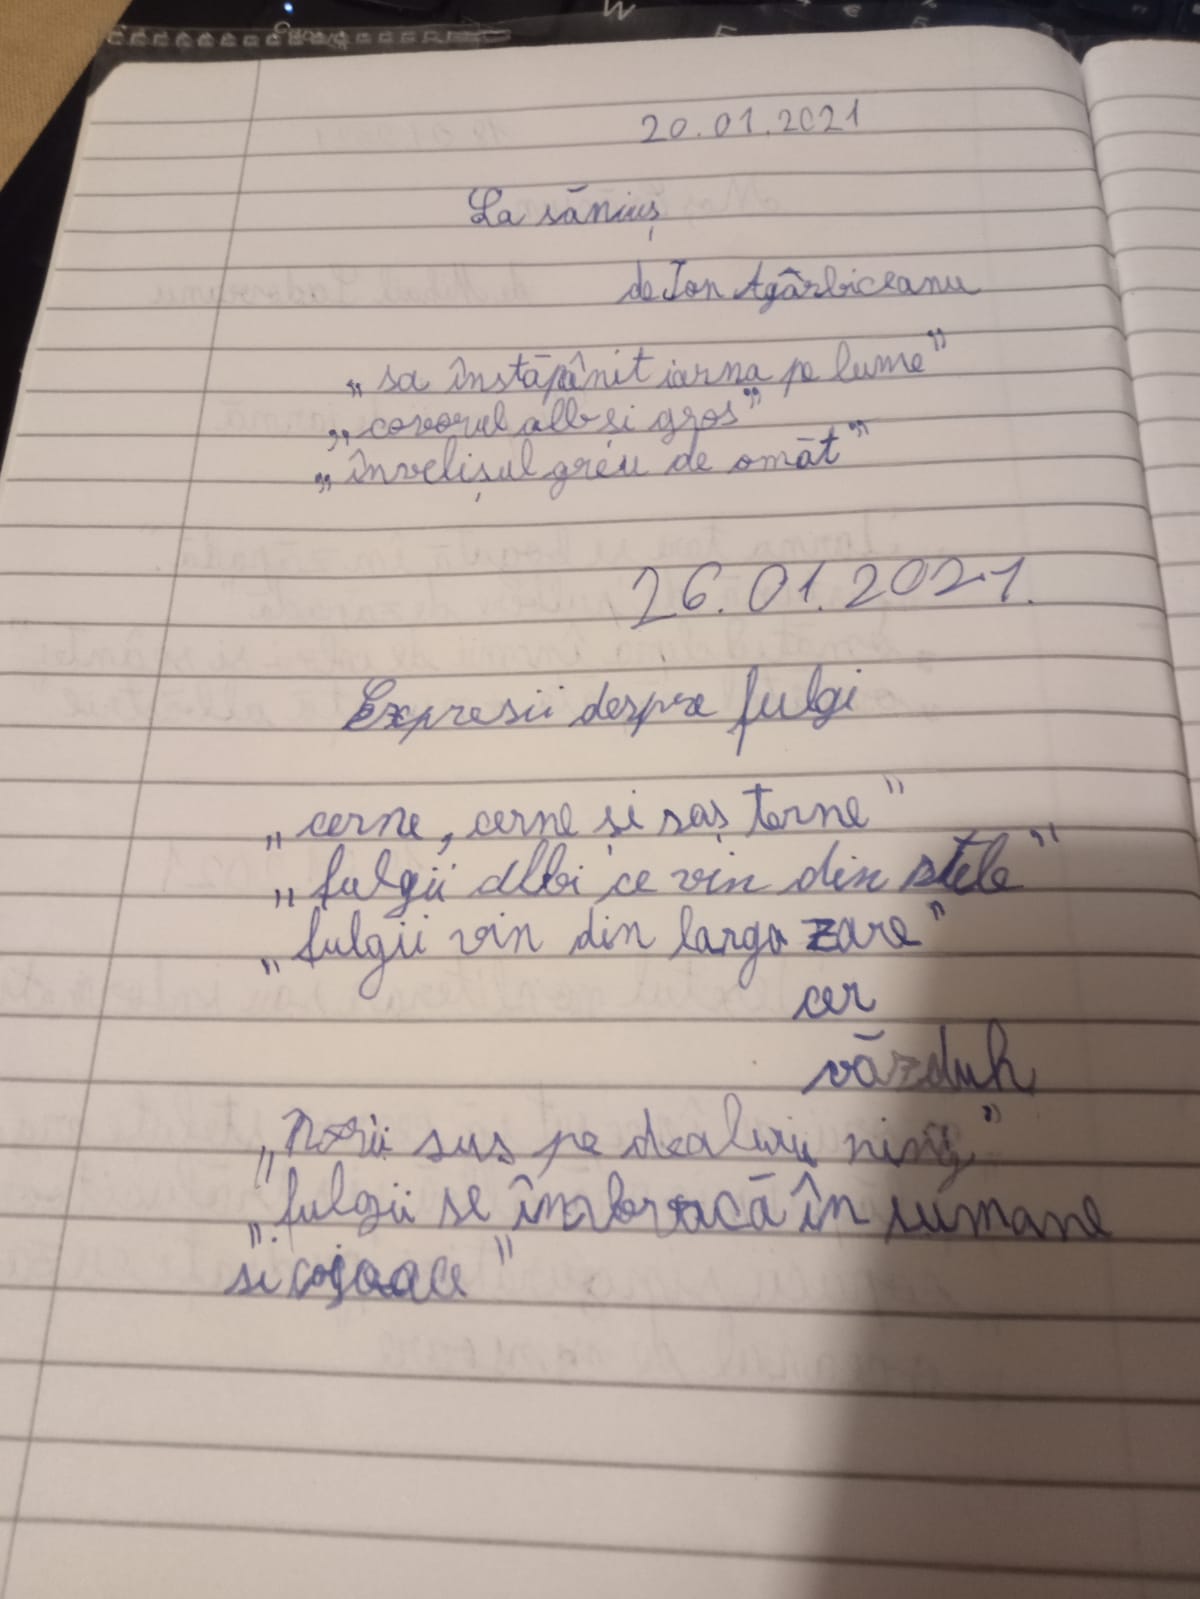 20.01.2021
La săniuș
de Ion Agârbiceanu
„sa înstăpânit iarna pe lume”
„covorul alb si gros”
„învelișul greu de omăt”
26.01.2021.
Expresii despre fulgi
„cerne, cerne și saș terne”
„fulgii albi ce vin din stele”
„fulgii vin din larga zare”
cer
văzduh
„Norii sus pe dealuri ning”
„fulgii se îmbracă în sumane
si cojoace”